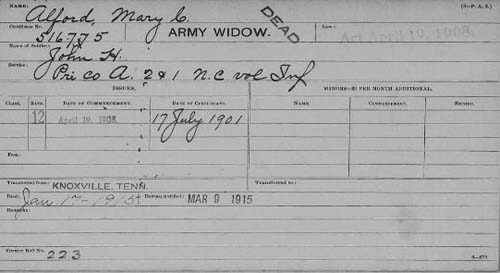 NAME: Alford, Mary C. (3—P. A. S.)
Certificate No. 516775 ARMY WIDOW. DEAD Law: Act April 19, 1908.
Name of Soldier: John H.
Service: Pri Co A. 2 & 1 N.C vol Inf
ISSUES. MINORS—$2 PER MONTH ADDITIONAL.
CLASS. RATE. DATE OF COMMENCEMENT. DATE OF CERTIFICATE. NAME. COMMENCEMENT. EXPIRES.
12 April 19, 1908. 17 July 1901
Fees:
Transferred from: KNOXVILLE, TENN. Transferred to:
Died: Jan. 17-1915 Bureau notified: MAR 9 1915
Remarks:
Former Roll No. 223